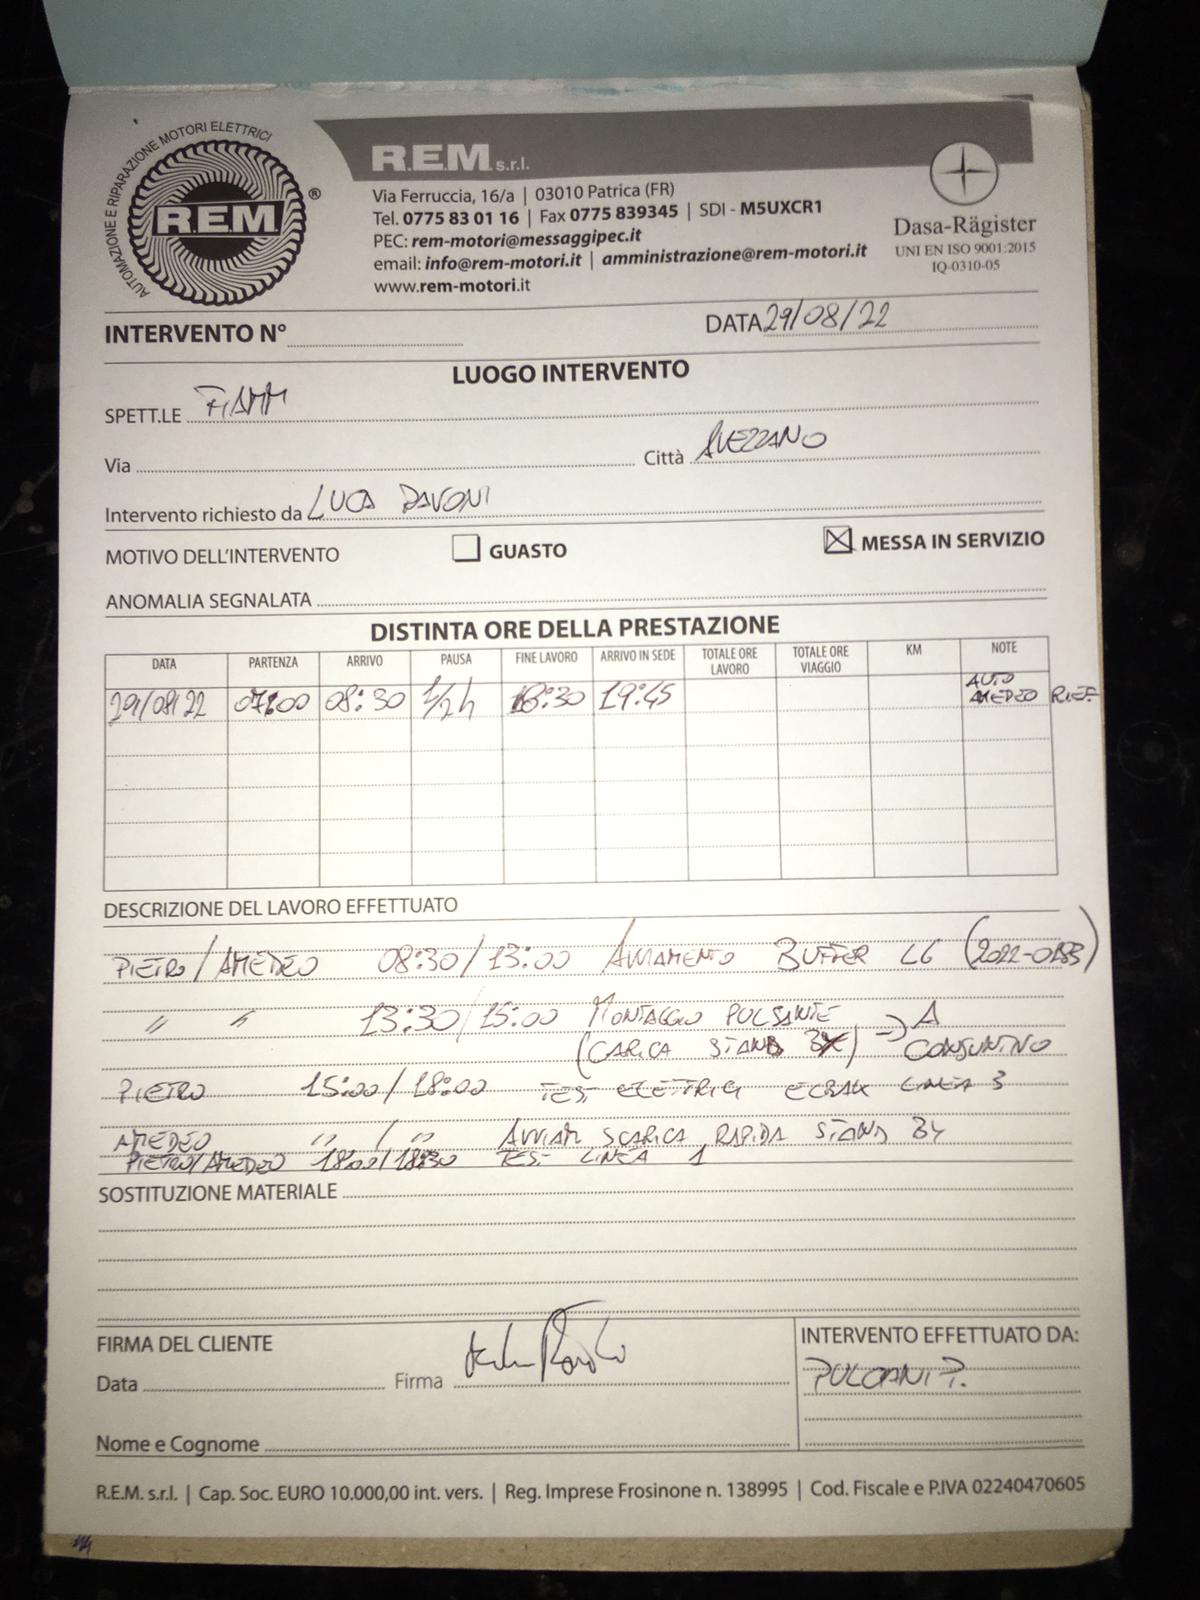 AUTOMAZIONE E RIPARAZIONE MOTORI ELETTRICI
REM ®
R.E.M s.r.l.
Via Ferruccia, 16/a | 03010 Patrica (FR)
Tel. 0775 83 01 16 | Fax 0775 839345 | SDI - M5UXCR1
PEC: rem-motori@messaggipec.it
email: info@rem-motori.it | amministrazione@rem-motori.it
www.rem-motori.it
Dasa-Rägister
UNI EN ISO 9001:2015
IQ-0310-05
INTERVENTO N° DATA 29/08/22
LUOGO INTERVENTO
SPETT.LE FIAMM
Via Città AVEZZANO
Intervento richiesto da LUCA
MOTIVO DELL'INTERVENTO GUASTO MESSA IN SERVIZIO
ANOMALIA SEGNALATA
DISTINTA ORE DELLA PRESTAZIONE
DATA PARTENZA ARRIVO PAUSA FINE LAVORO ARRIVO IN SEDE TOTALE ORE LAVORO TOTALE ORE VIAGGIO KM NOTE
29/08/22 07:00 08:30 1/2h 18:30 19:45 AUTO AMEDEO RIEF.
DESCRIZIONE DEL LAVORO EFFETTUATO
PIETRO/AMEDEO 08:30/13:00 AVVIAMENTO BUFFER L6 (2022-0183)
" " 13:30/15:00 MONTAGGIO PULSANTE → A
(CARICA STAND BY) CONSUNTIVO
PIETRO 15:00/18:00 TEST ELETTRICI LINEA 3
AMEDEO " / " AVVIAM. SCARICA RAPIDA STAND BY
PIETRO/AMEDEO 18:00/18:30 TEST LINEA 1
SOSTITUZIONE MATERIALE
FIRMA DEL CLIENTE
Data Firma
Nome e Cognome
INTERVENTO EFFETTUATO DA:
PULCIANI P.
R.E.M. s.r.l. | Cap. Soc. EURO 10.000,00 int. vers. | Reg. Imprese Frosinone n. 138995 | Cod. Fiscale e P.IVA 02240470605